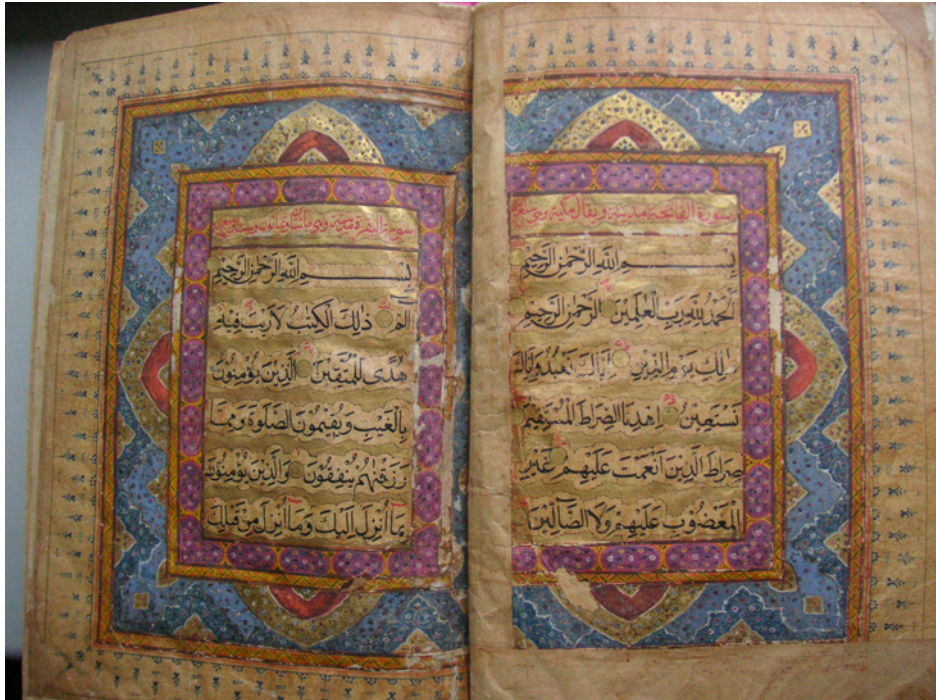 سورة الفاتحة مدنية ويقال مكية وهي سبع
بِسْمِ اللّٰهِ الرَّحْمٰنِ الرَّحِيْمِ
اَلْحَمْدُ لِلّٰهِ رَبِّ الْعٰلَمِيْنَ الرَّحْمٰنِ الرَّحِيْمِ
مٰلِكِ يَوْمِ الدِّيْنِ اِيَّاكَ نَعْبُدُ وَاِيَّاكَ
نَسْتَعِيْنُ اِهْدِنَا الصِّرَاطَ الْمُسْتَقِيْمَ
صِرَاطَ الَّذِيْنَ اَنْعَمْتَ عَلَيْهِمْ غَيْرِ
الْمَغْضُوْبِ عَلَيْهِمْ وَلَا الضَّالِّيْنَ
سورة البقرة مدنية وهي مائتان وثمانون
بِسْمِ اللّٰهِ الرَّحْمٰنِ الرَّحِيْمِ
الٓمّٓ ذٰلِكَ الْكِتٰبُ لَا رَيْبَ فِيْهِ
هُدًى لِّلْمُتَّقِيْنَ الَّذِيْنَ يُؤْمِنُوْنَ
بِالْغَيْبِ وَيُقِيْمُوْنَ الصَّلٰوةَ وَمِمَّا
رَزَقْنٰهُمْ يُنْفِقُوْنَ وَالَّذِيْنَ يُؤْمِنُوْنَ
بِمَا اُنْزِلَ اِلَيْكَ وَمَا اُنْزِلَ مِنْ قَبْلِكَ